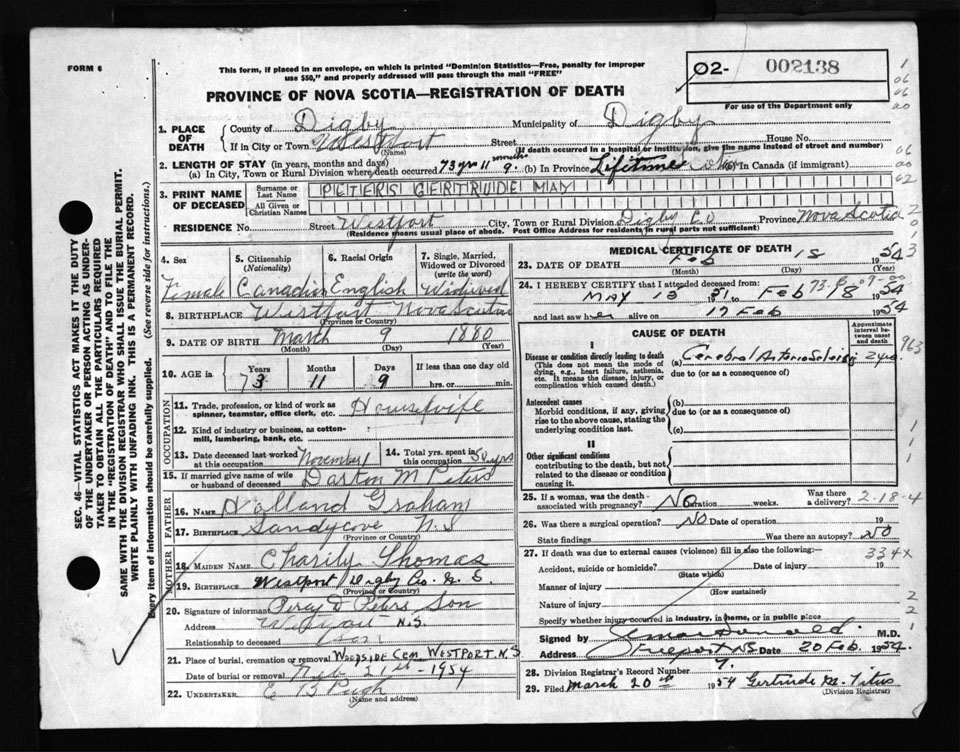 FORM 6
This form, if placed in an envelope, on which is printed "Dominion Statistics—Free, penalty for improper
use $50," and properly addressed will pass through the mail "FREE"
02- 002138
For use of the Department only
PROVINCE OF NOVA SCOTIA—REGISTRATION OF DEATH
1. PLACE OF DEATH
County of Digby Municipality of Digby
If in City or Town Westport Street House No.
(Name) (If death occurred in a hospital or institution, give the name instead of street and number)
2. LENGTH OF STAY (in years, months and days)
(a) In City, Town or Rural Division where death occurred 73 yrs 11 months 9 (b) In Province Lifetime (c) In Canada (if immigrant)
3. PRINT NAME OF DECEASED
Surname or Last Name PETERS GERTRUDE MAY
All Given or Christian Names
RESIDENCE No. Street Westport City, Town or Rural Division Digby Co Province Nova Scotia
(Residence means usual place of abode. Post Office Address for residents in rural parts not sufficient)
4. Sex
Female
5. Citizenship (Nationality)
Canadian
6. Racial Origin
English
7. Single, Married, Widowed or Divorced (write the word)
Widowed
8. BIRTHPLACE Westport Nova Scotia
(Province or Country)
9. DATE OF BIRTH March 9 1880
(Month) (Day) (Year)
10. AGE in
Years Months Days If less than one day
73 11 9 hrs. or min.
OCCUPATION
11. Trade, profession, or kind of work as spinner, teamster, office clerk, etc. Housewife
12. Kind of industry or business, as cotton-mill, lumbering, bank, etc.
13. Date deceased last worked at this occupation November
14. Total yrs. spent in this occupation 50 yrs
15. If married give name of wife or husband of deceased M Peters
FATHER
16. NAME Holland Graham
17. BIRTHPLACE Sandycove N.S
(Province or Country)
MOTHER
18. MAIDEN NAME Charity Thomas
19. BIRTHPLACE Westport Digby Co. N.S.
(Province or Country)
20. Signature of informant Percy D Peters Son
Address Westport N.S.
Relationship to deceased Son
21. Place of burial, cremation or removal WOODSIDE CEM WESTPORT. N.S
Date of burial or removal 21st - 1954
22. UNDERTAKER E B Pugh
(Name and address)
MEDICAL CERTIFICATE OF DEATH
23. DATE OF DEATH Feb 18 1954
(Month) (Day) (Year)
24. I HEREBY CERTIFY that I attended deceased from:
May 13 1951 to Feb 18 1954
and last saw her alive on 17 Feb 1954
CAUSE OF DEATH
Approximate interval between onset and death
I
Disease or condition directly leading to death
(This does not mean the mode of dying, e.g., heart failure, asthenia, etc. It means the disease, injury, or complication which caused death.)
(a) Cerebral Arteriosclerosis 2 yrs.
due to (or as a consequence of)
Antecedent causes
Morbid conditions, if any, giving rise to the above cause, stating the underlying condition last.
(b)
due to (or as a consequence of)
(c)
II
Other significant conditions
contributing to the death, but not related to the disease or condition causing it.
25. If a woman, was the death associated with pregnancy? No Duration weeks. Was there a delivery? 2-18-4
26. Was there a surgical operation? No Date of operation 19
State findings Was there an autopsy? No
27. If death was due to external causes (violence) fill in also the following:— 334X
Accident, suicide or homicide? Date of injury 19
(State which)
Manner of injury
(How sustained)
Nature of injury
Specify whether injury occurred in industry, in home, or in public place
Signed by MacDonald M.D.
Address Freeport NS Date 20 Feb. 1954.
28. Division Registrar's Record Number 7.
29. Filed March 20th 1954 Gertrude M. Titus
(Division Registrar)
SEC. 46—VITAL STATISTICS ACT MAKES IT THE DUTY
OF THE UNDERTAKER OR PERSON ACTING AS UNDER-
TAKER TO OBTAIN ALL THE PARTICULARS REQUIRED
IN THE "REGISTRATION OF DEATH" AND TO FILE THE
SAME WITH THE DIVISION REGISTRAR WHO SHALL ISSUE THE BURIAL PERMIT.
WRITE PLAINLY WITH UNFADING INK. THIS IS A PERMANENT RECORD.
Every item of information should be carefully supplied. (See reverse side for instructions.)